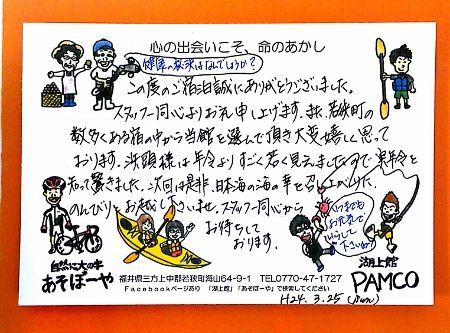 心の出会いこそ、命のあかし
健康の秘訣はなんでしょうか?
この度のご宿泊誠にありがとうございました。
スタッフ一同心よりお礼申し上げます。我、若狭町の
数多くある宿の中から当館を選んで頂き大変嬉しく思って
おります。浜頭様は年令よりすごく若く見えましたので実年令を
知って驚きました。次回は是非、日本海の海の幸を召し上がりに
のんびりとお越し下さいませ。スタッフ一同心から
お待ちして
おります。
いつまでも
お元気で
いらして
下さいね♡
自然に大の字
あそぼーや
湖上館
PAMCO
福井県三方上中郡若狭町海山64-9-1 TEL0770-47-1727
Facebookページあり 「湖上館」「あそぼーや」で検索してください
H24. 3. 25 (sun)